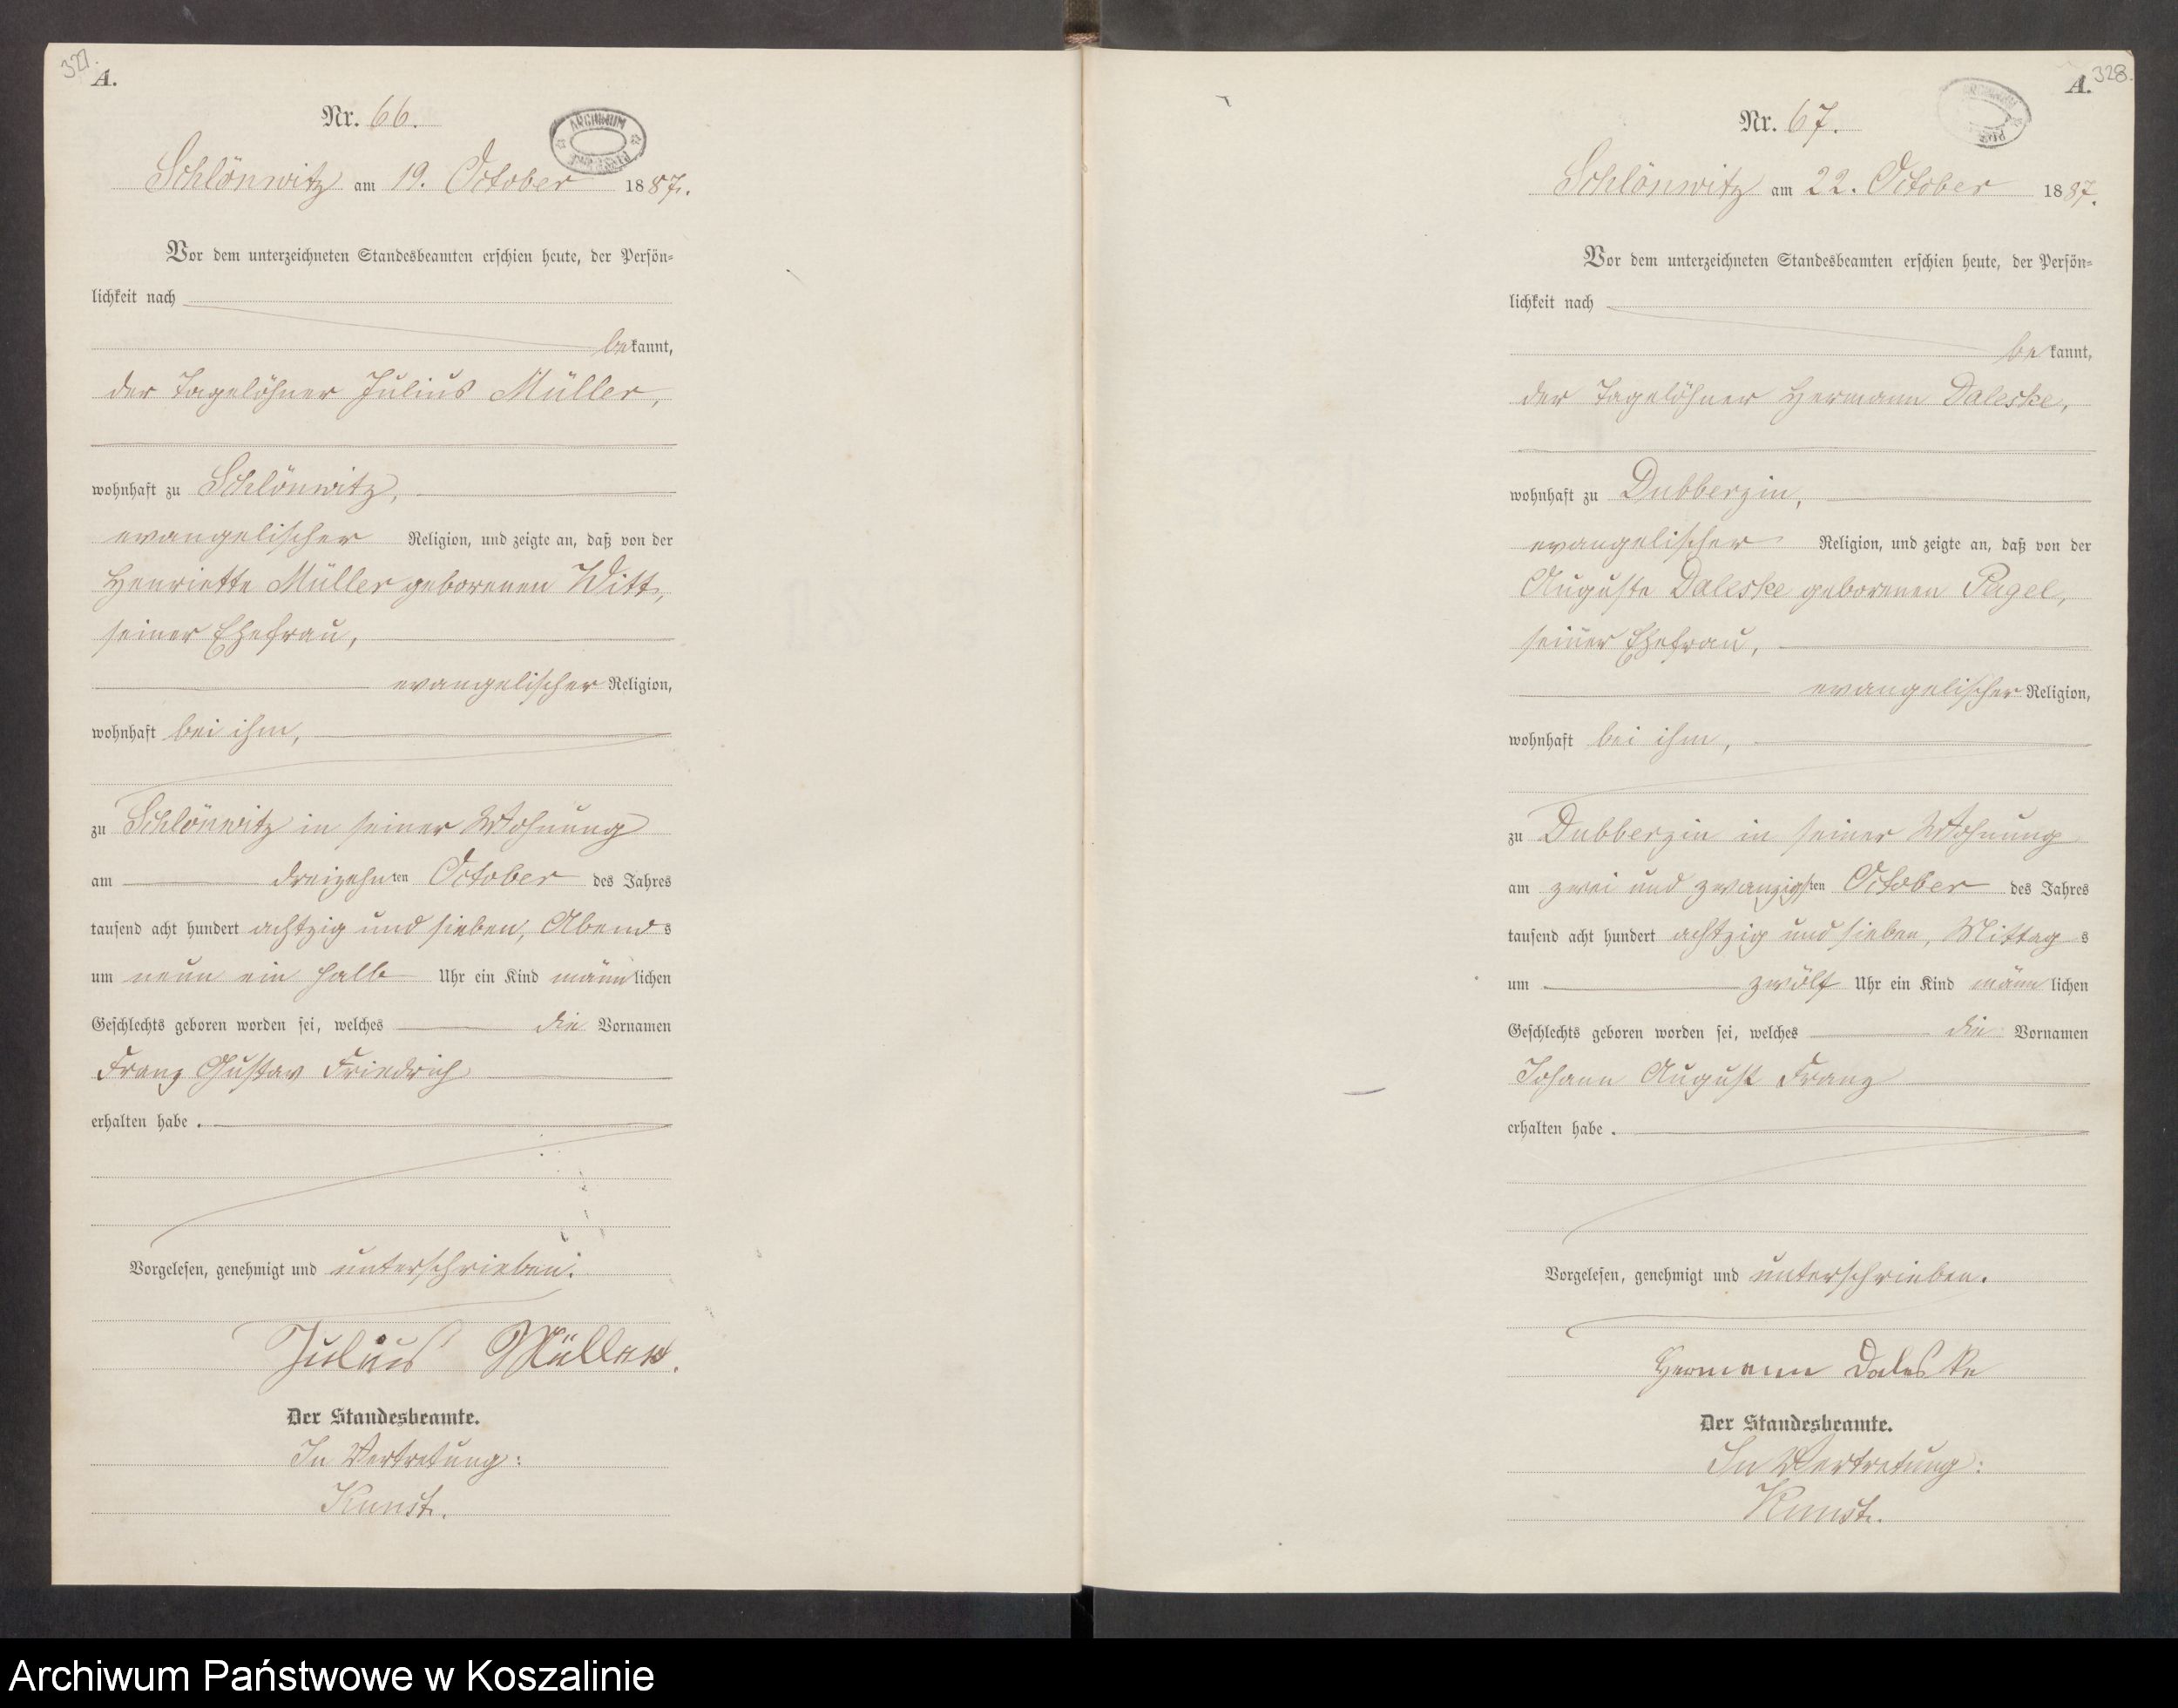 327.
A.
Nr. 66.
ARCHIWUM
Schlönwitz am 19. October 1887.
Vor dem unterzeichneten Standesbeamten erschien heute, der Persön-
lichkeit nach
bekannt,
der Tagelöhner Julius Müller,
wohnhaft zu Schlönwitz,
evangelischer Religion, und zeigte an, daß von der
Henriette Müller geborenen Witt,
seiner Ehefrau,
evangelischer Religion,
wohnhaft bei ihm,
zu Schlönwitz in seiner Wohnung
am dreizehnten October des Jahres
tausend acht hundert achtzig und sieben, Abends
um neun ein halb Uhr ein Kind männlichen
Geschlechts geboren worden sei, welches die Vornamen
Franz Gustav Friedrich
erhalten habe.
Vorgelesen, genehmigt und unterschrieben.
Julius Müller.
Der Standesbeamte.
In Vertretung:
Kunst.
328.
A.
Nr. 67.
Schlönwitz am 22. October 1887.
Vor dem unterzeichneten Standesbeamten erschien heute, der Persön-
lichkeit nach
bekannt,
der Tagelöhner Hermann Daleske,
wohnhaft zu Dubberzin,
evangelischer Religion, und zeigte an, daß von der
Auguste Daleske geborenen Pagel,
seiner Ehefrau,
evangelischer Religion,
wohnhaft bei ihm,
zu Dubberzin in seiner Wohnung
am zwei und zwanzigsten October des Jahres
tausend acht hundert achtzig und sieben, Mittags
um zwölf Uhr ein Kind männlichen
Geschlechts geboren worden sei, welches die Vornamen
Johann August Franz
erhalten habe.
Vorgelesen, genehmigt und unterschrieben.
Hermann Daleske
Der Standesbeamte.
In Vertretung:
Kunst.
Archiwum Państwowe w Koszalinie